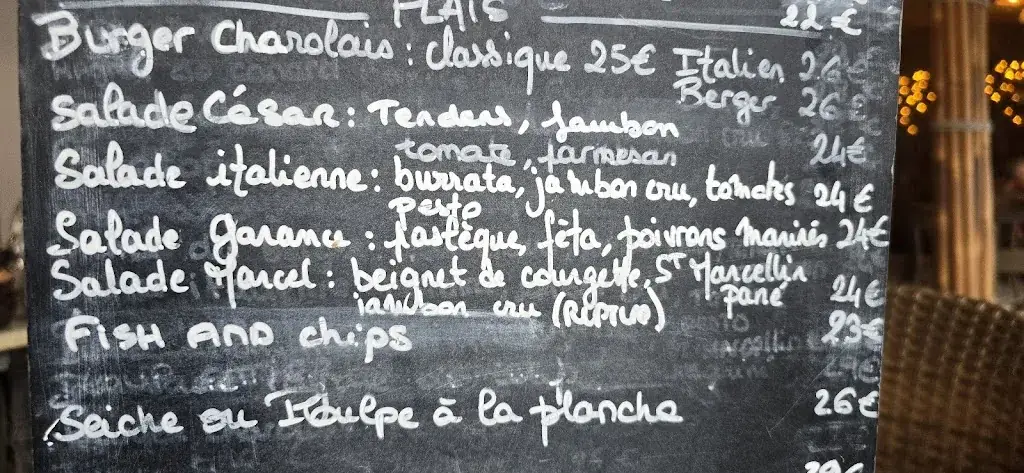 PLATS 22 €
Burger Charolais : classique 25€ Italien 26€
Berger 26€
Salade César : Tenders, jambon
tomate, parmesan 24€
Salade italienne : burrata, jambon cru, tomates 24€
pesto
Salade garance : pastèque, fêta, poivrons marinés 24€
Salade Marcel : beignet de courgette, ST Marcellin
jambon cru pané 24€
FISH AND chips 23€
Seiche ou Poulpe à la plancha 26€